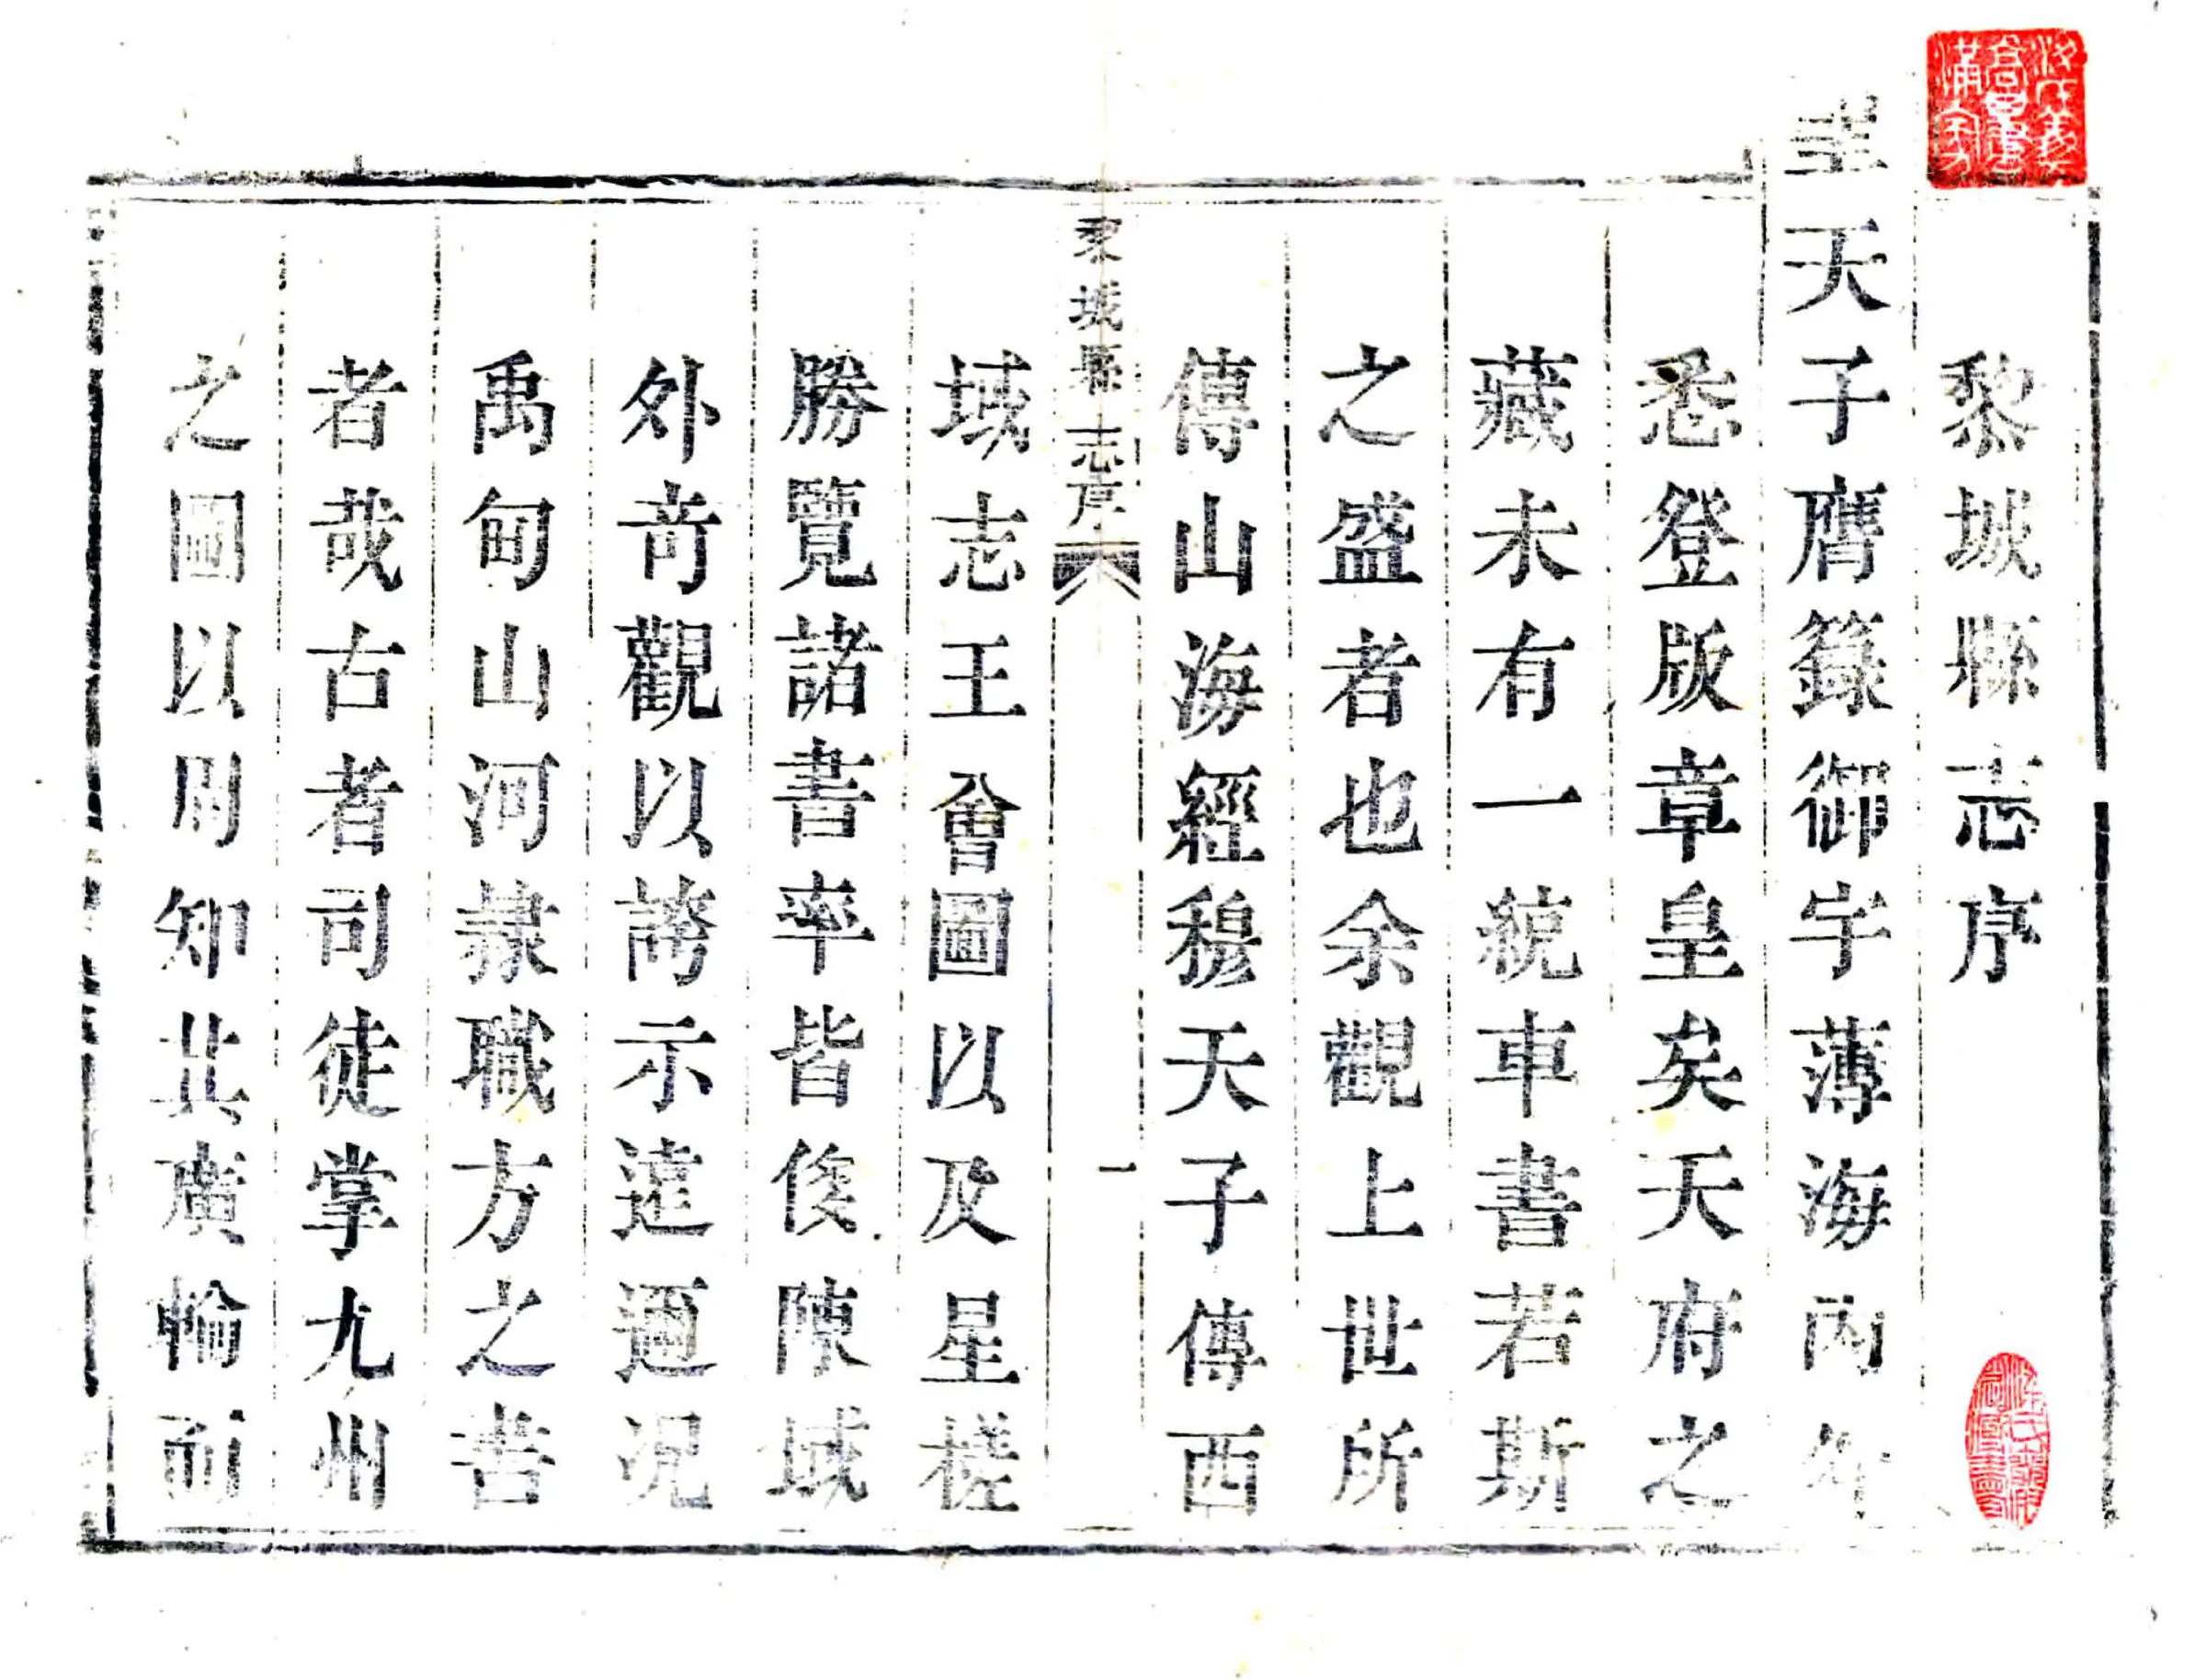 黎城縣志序
聖天子膺籙御宇薄海內外
悉登版章皇矣天府之
藏未有一統車書若斯
之盛者也余觀上世所
傳山海經穆天子傳西
域志王會圖以及星槎
勝覽諸書率皆侈陳域
外竒觀以誇示遠邇況
禹甸山河隷職方之書
者哉古者司徒掌九州
之圖以周知其廣輪而
黎城縣志序
一